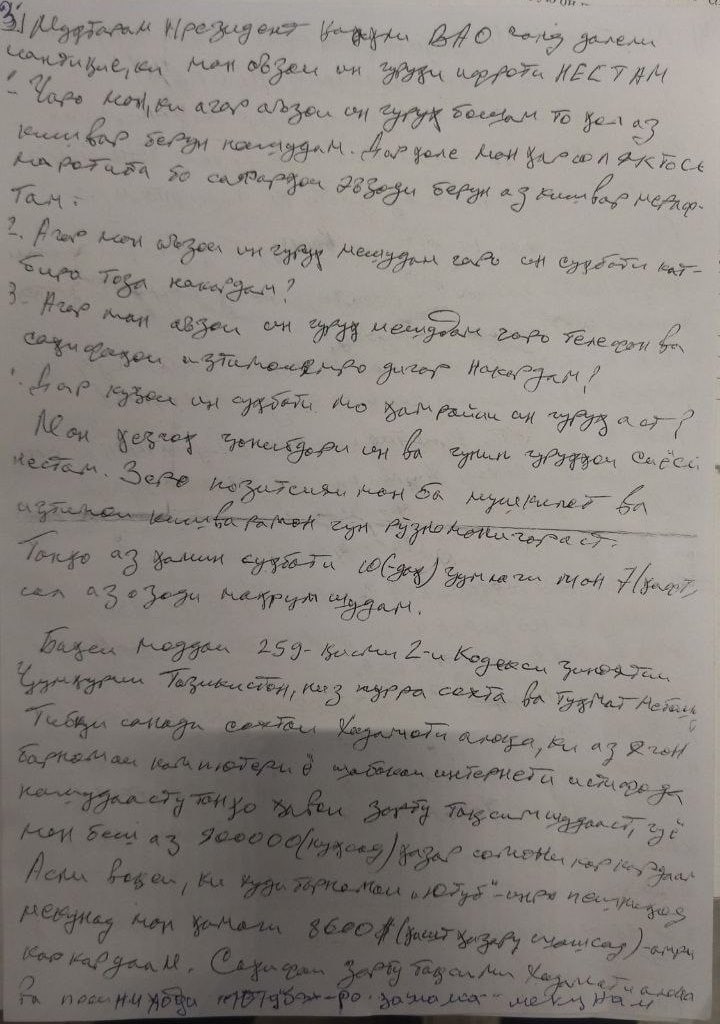 3) Мӯҳтарам Президент қабули ВАО чанд далели
мантиқие, ки ман аъзои ин гурӯҳи ифротӣ НЕСТАМ
1- Чаро ман, ки агар аъзои ин гуруҳ бошам то ҳол аз
кишвар берун нашудам. Дар ҳоле ман ҳар сол як то се
маротиба бо сафарҳои берун аз кишвар мерафтам.
2. Агар ман аъзои ин гуруҳ мешудам чаро ин суҳбати кат-
биро тоза накардам?
3. Агар ман аъзои ин гуруҳ мешудам чаро телефон ва
саҳифаҳои иҷтимоиямро дигар накардам?
Дар куҷои ин суҳбати мо ҳамроҳии ин гуруҳ аст?
Ман ҳеҷгоҳ ҷонибдори ин ва чунин гуруҳҳои сиёсӣ
нестам. Зеро позитсияи ман ба мушкилот ва
иҷтимои кишварамон чун рӯзноманигор аст.
Танҳо аз ҳамин суҳбати 10(-даҳ) ҷумлаги ман 7(ҳафт)
сол аз озодӣ маҳрум шудам.
Баҳси моддаи 259- қисми 2-и Кодекси ҷиноятии
Ҷумҳурии Тоҷикистон, низ пурра сохта ва туҳмат мебошад
Тибқи санади сохтаи Хадамоти алоқа, ки аз ягон
барномаи компютерӣ ё шабакаи интернетӣ истифода
нашудаасту танҳо ҳавои зарбу тақсим шудааст, гӯё
ман беш аз 900000(нуҳсад) ҳазор сомонӣ кор кардаам
Асли воқеӣ, ки худи барномаи „Ютуб"-инро пешниҳод
мекунад ман ҳамагӣ 8600$ (ҳашт ҳазору шашсад)
кор кардаам. Саҳифаи зарбу тақсими Хадамоти алоқа
ва